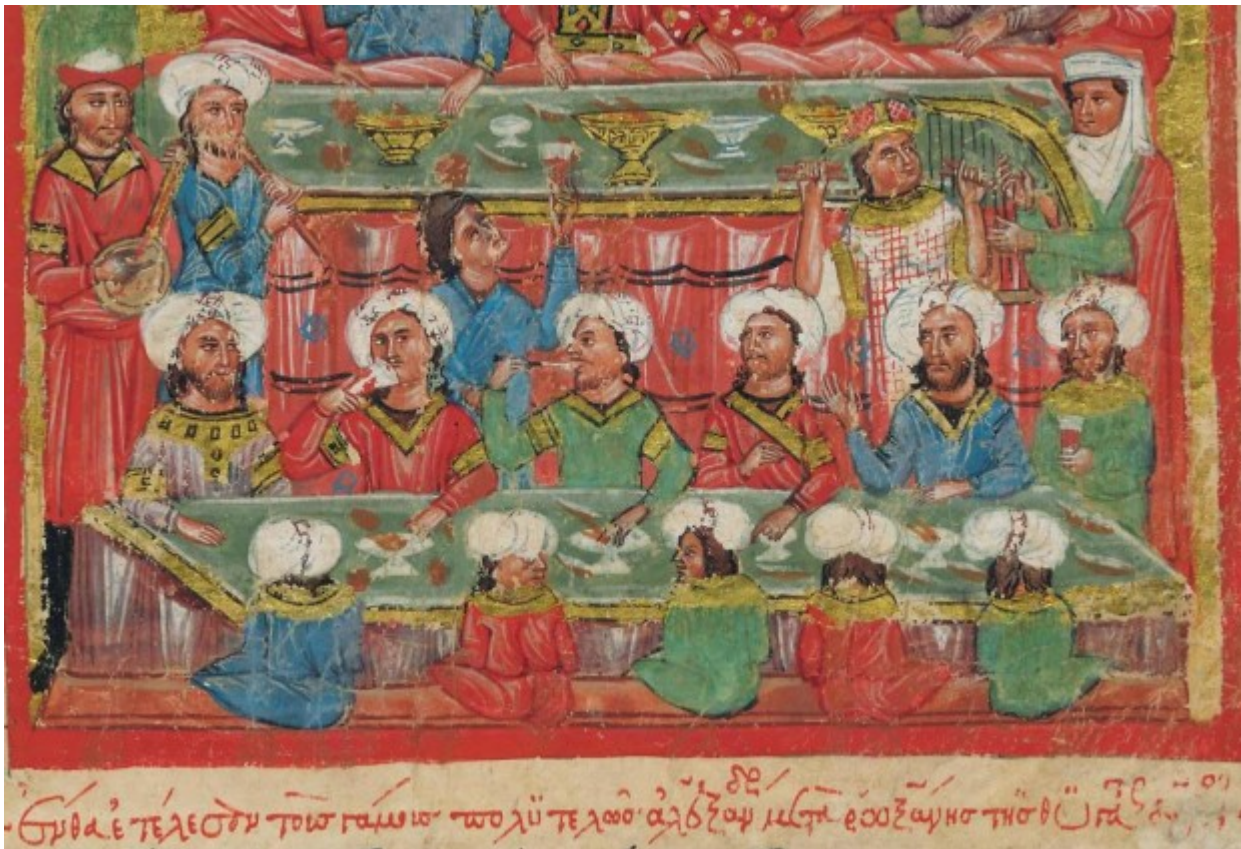 Ἔνθα ἐτέλεσεν τοῖσ γάμοισ πολϋτελῶσ· ἀλέξανδρ μετὰ ρουξάνησ τῆσ θϋγατρς